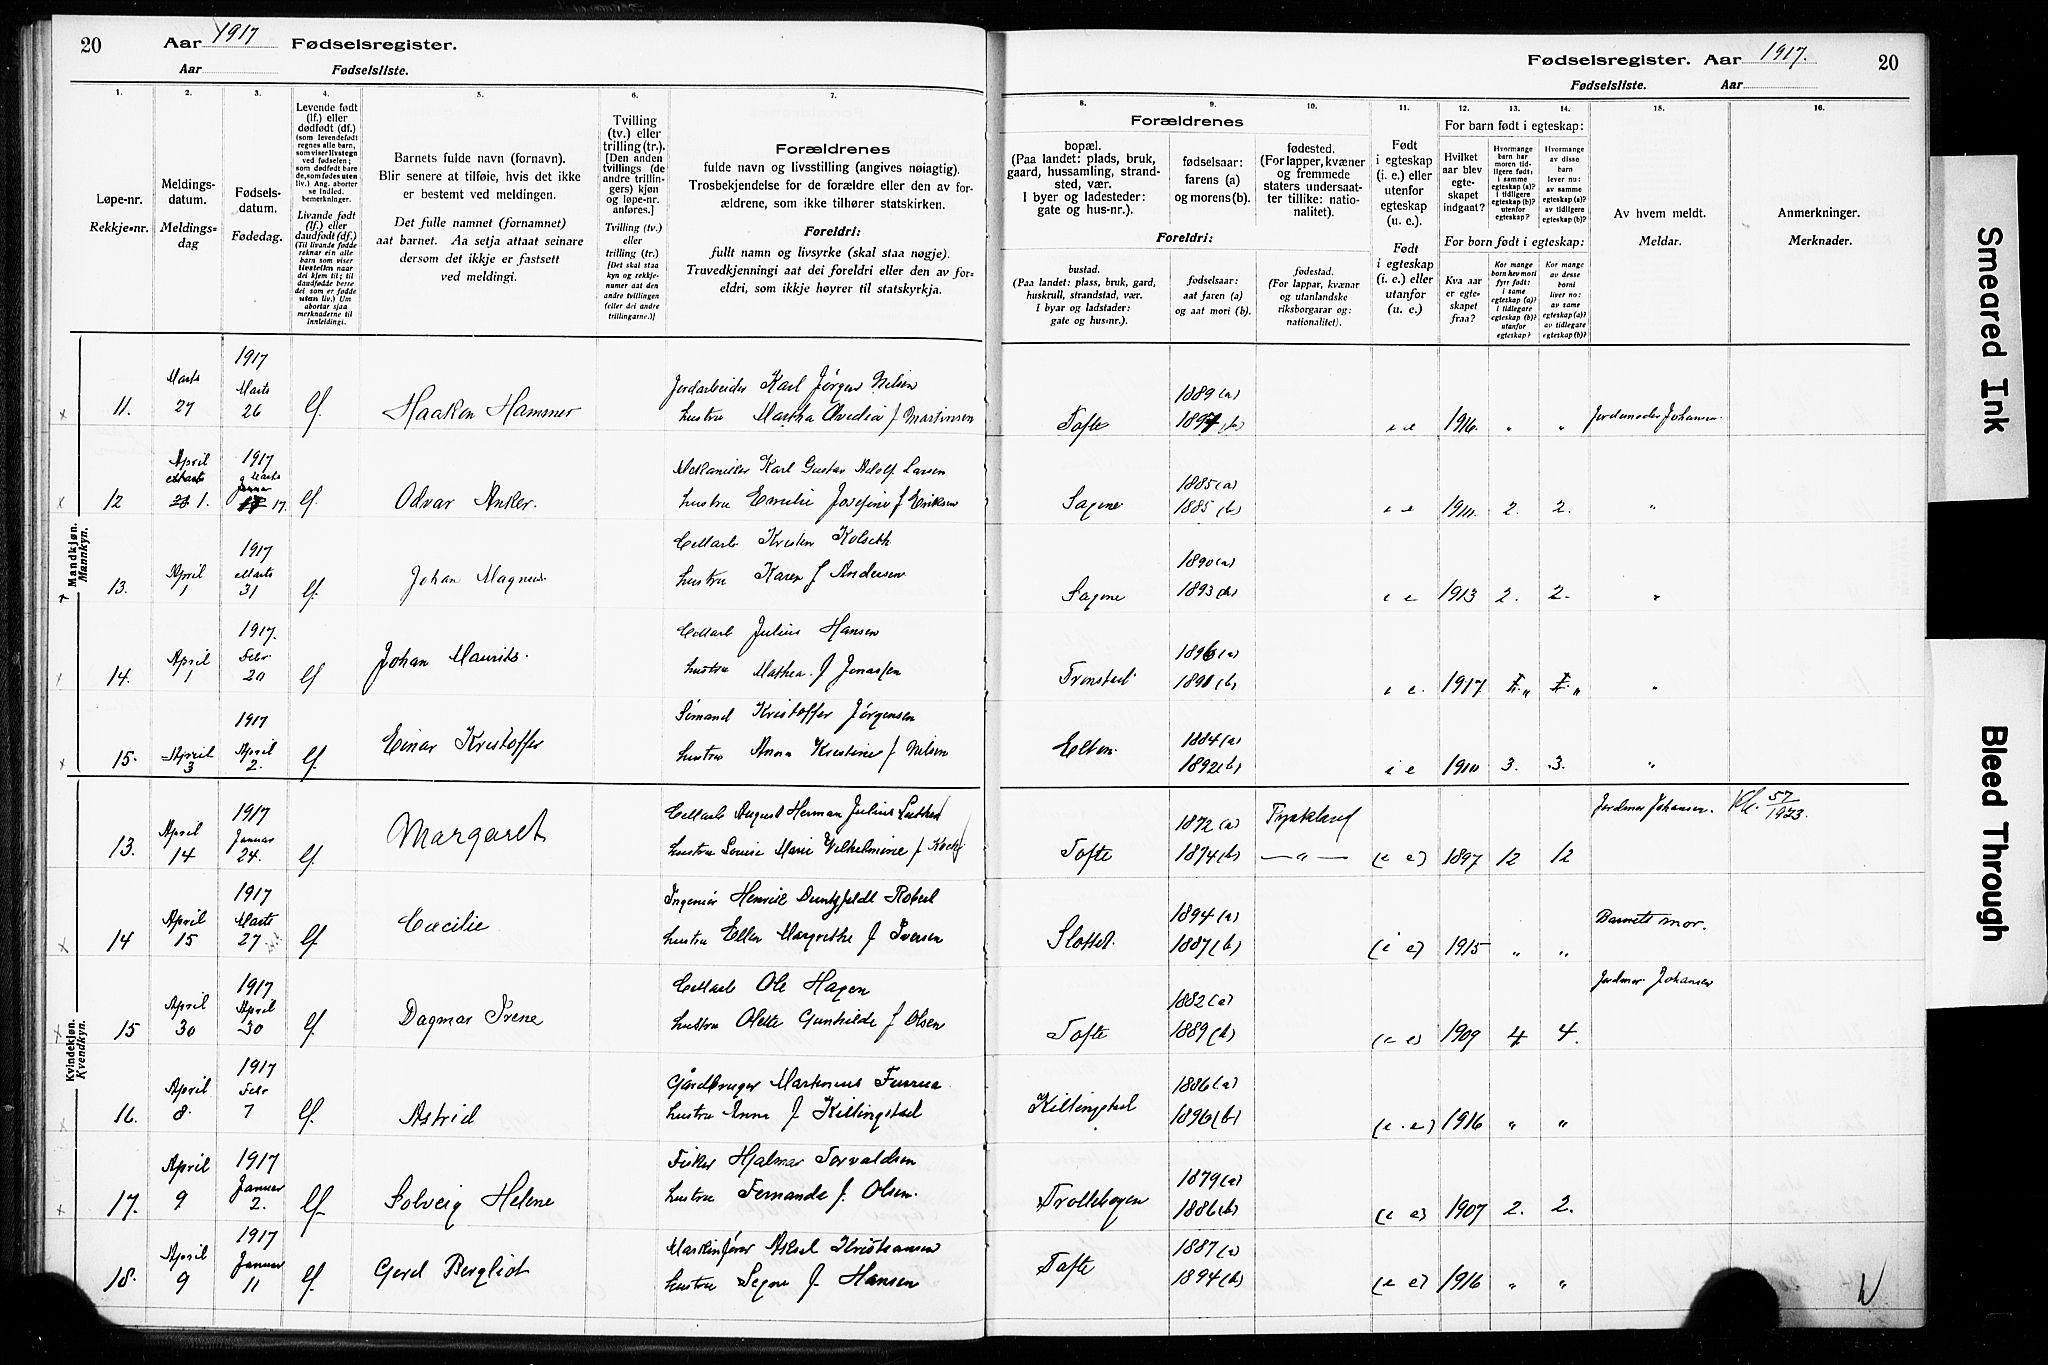 20 Aar 1917 Fødselsregister.
Aar Fødselsliste.
Fødselsregister. Aar 1917. 20
Fødselsliste. Aar
1. 2. 3. 4. 5. 6. 7.
Løpe-nr.
Rekkje-nr.
Meldings-
datum.
Meldings-
dag
Fødsels-
datum.
Fødedag.
Levende født
(lf.) eller
dødfødt (df.)
(som levendefødt
regnes alle barn,
som viser livstegn
ved fødselen;
som dødfødt bare
de, som fødes uten
liv.) Ang. aborter
se Indled.
bemerkninger.
Livande født
(lf.) eller
daudfødt (df.)
(Til livande fødde
reknar ein alle
barn som viser
livsteikn naar
dei kjem til; til
daudfødde berre
dei som er fødde
utan liv.) Um
abortar sjaa
merknaderne til
innleiding.
Barnets fulde navn (fornavn).
Blir senere at tilføie, hvis det ikke
er bestemt ved meldingen.
Det fulle namnet (fornamnet)
aat barnet. Aa setja attaat seinare
dersom det ikkje er fastsett
ved meldingi.
Tvilling
(tv.) eller
trilling (tr.).
[Den anden
tvillings (de
andre trillin-
gers) kjøn
og løpe-nr.
anføres.]
Tvilling (tv.)
eller
trilling (tr.)
[Det skal staa
kyn og rekkje-
numer aat den
andre tvillingen
(eller dei andre
trillingarne.)]
Forældrenes
fulde navn og livsstilling (angives nøiagtig).
Trosbekjendelse for de forældre eller den av for-
ældrene, som ikke tilhører statskirken.
Foreldri:
fullt namn og livsyrke (skal staa nøgje).
Truvedkjenningi aat dei foreldri eller den av for-
eldri, som ikkje høyrer til statskyrkja.
8. 9. 10. 11. 12. 13. 14. 15. 16.
Forældrenes
bopæl.
(Paa landet: plads, bruk,
gaard, hussamling, strand-
sted, vær.
I byer og ladesteder:
gate og hus-nr.).
fødselsaar:
farens (a)
og morens (b).
fødested.
(For lapper, kvæner
og fremmede
staters undersaat-
ter tillike: natio-
nalitet).
Foreldri:
bustad.
(Paa landet: plass, bruk, gard,
huskrull, strandstad, vær.
I byar og ladstader:
gate og hus-nr.).
fødselsaar:
aat faren (a)
og aat mori (b).
fødestad.
(For lappar, kvænar
og utanlandske
riksborgarar og:
nationalitet).
Født
i egteskap
(i. e.) eller
utenfor
egteskap
(u. e.).
Født
i egteskap
(i. e.) eller
utanfor
(u. e.).
For barn født i egteskap:
Hvilket
aar blev
egte-
skapet
indgaat?
Hvormange
barn har
moren tid-
ligere født:
i samme
egteskap (a)?
i tidligere
egteskap (b)?
utenfor
egteskap?
Hvormange
av disse
barn
lever nu:
av samme
egteskap (a)?
av tidligere
egteskap (b)?
For born født i egteskap:
Kva aar
er egte-
skapet
fraa?
Kor mange
born hev mori
fyrr født:
i same
egteskap (a)?
i tidlegare
egteskap (b)?
utanfor
egteskap?
Kor mange
av desse
borni
liver no:
av same
egteskap (a)?
av tidlegare
egteskap (b)?
Av hvem meldt.
Meldar.
Anmerkninger.
Merknader.
Mandkjøn.
Mannkyn.
1917
Marts Marts Jordarbeider Karl Jørgen Nilsen 1889 (a)
11. 27 26 lf. Haakon Hamsner hustru Martha Ovedia f Martinsen Tofte (b) i e 1916. " " Jordemoder Johansen.
April 1917 Mekaniker Karl Gustav Adolf Larsen 1885 (a)
12 1. Marts 17. lf. Odvar Anker. hustru Emilie Josefine f Eriksen Sagene 1885 (b) i e 1910. 2. 2. "
1917 Cellarb Kristen Kolseth 1890 (a)
13. April 1 Marts 31 lf. Johan Magnus. hustru Karen f Andersen Sagene 1893 (b) i e 1913 2. 2. "
1917. Cellarb Julius Hansen 1896 (a)
14. April 1 Febr. 20 lf Johan Maurits. hustru Mathea f Jonassen Tronstad 1891 (b) i e. 1917 " " "
1917 Sømand Kristoffer Jørgensen 1884 (a)
15. April 3 April 2. lf. Einar Kristoffer hustru Anna Kristine f Nilsen Elton 1892 (b) i e 1910 3. 3. "
Kvindekjøn.
Kvendkyn.
1917 Cellarb August Herman Julius 1872 (a) Tyskland Jordmor Johansen. Kl. 57/1923.
13. April 14 Januar 24. lf Margaret hustru Louise Marie Vilhelmine f Koch Tofte 1874 (b) — " — (i e) 1897 12 12
1917 Ingeniør Henrik Duntzfeldt Robert 1894 (a)
14 April 15 Marts 27 lf. Cæcilie hustru Ellen Margrethe f Iversen Slottet. 1887 (b) (i e) 1915 " " Barnets mor.
1917 Cellarb Ole Hagen 1882 (a) Jordmor Johansen
15 April 30 April 30 lf. Dagmar Irene hustru Olette Gunhilde f Olsen Tofte 1889 (b) (i e) 1909 4 4.
1917 Gårdbruger Martinius Furrua 1886 (a)
16. April 8. Febr 7 lf. Astrid hustru Anna f. Killingstad Killingstad 1896 (b) (i. e.) 1916 " "
1917 Fisker Hjalmar Torvaldsen 1879 (a)
17. April 9 Januar 2. lf Solveig Helene hustru Fernanda f. Olsen. Trollebogen 1886 (b) (i e) 1907 2. 2.
1917 Maskinfører Aksel Kristiansen 1887 (a)
18. April 9 Januar 11 lf. Gerd Bergliot hustru Signe f. Hansen Tofte 1894 (b) (i e) 1916 " "
Smeared Ink
Bleed Through